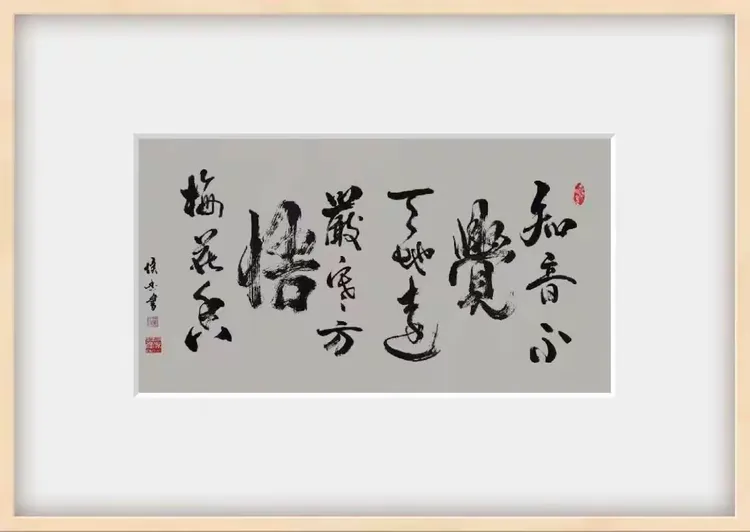 知音不
覺
天地遠
嚴寒方
悟
梅花香
書